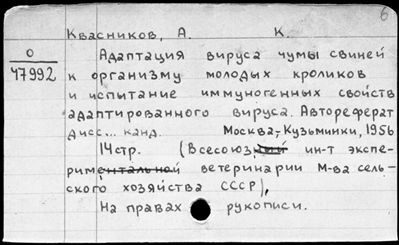 6
Квасников, А. К.
О
47992
Адаптация вируса чумы свиней
к организму молодых кроликов
и испытание иммуногенных свойств
адаптированного вируса. Автореферат
дисс... канд. Москва,-Кузьминки, 1956
14стр. (Всесоюзный ин-т экспе-
риментальной ветеринарии М-ва сель-
ского хозяйства СССР),
На правах рукописи.